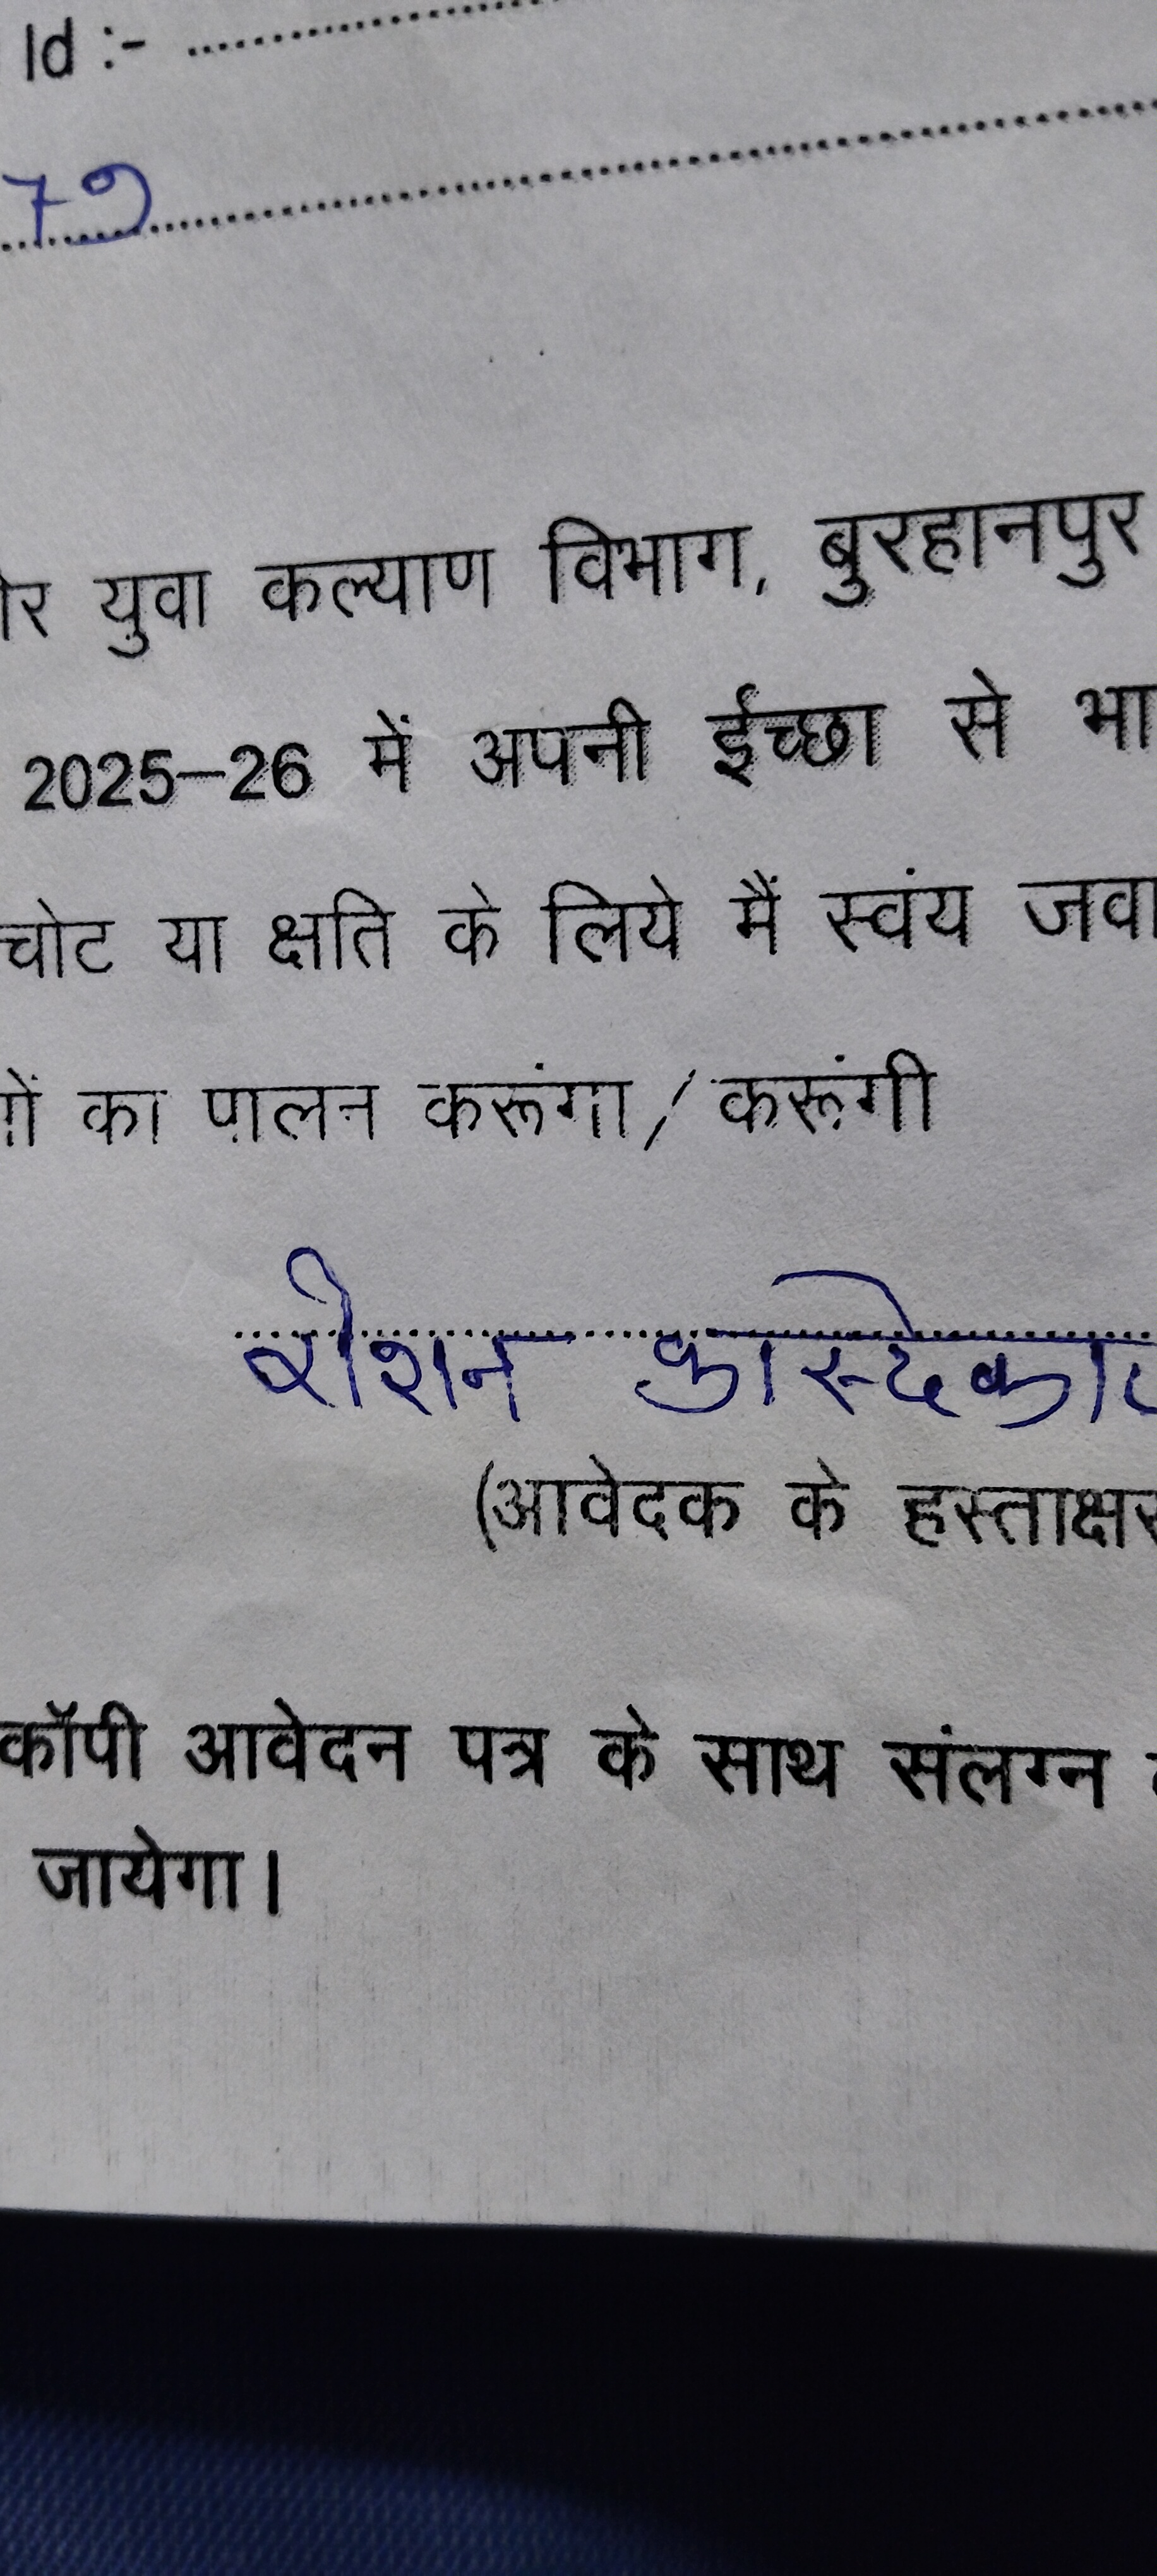 Id :- ..............................
79..............................
युवा कल्याण विभाग, बुरहानपुर
2025–26 में अपनी ईच्छा से भा
चोट या क्षति के लिये मैं स्वंय जवा
का पालन करूंगा/करूंगी
रोशन कास्देका
(आवेदक के हस्ताक्षर
कॉपी आवेदन पत्र के साथ संलग्न
जायेगा।